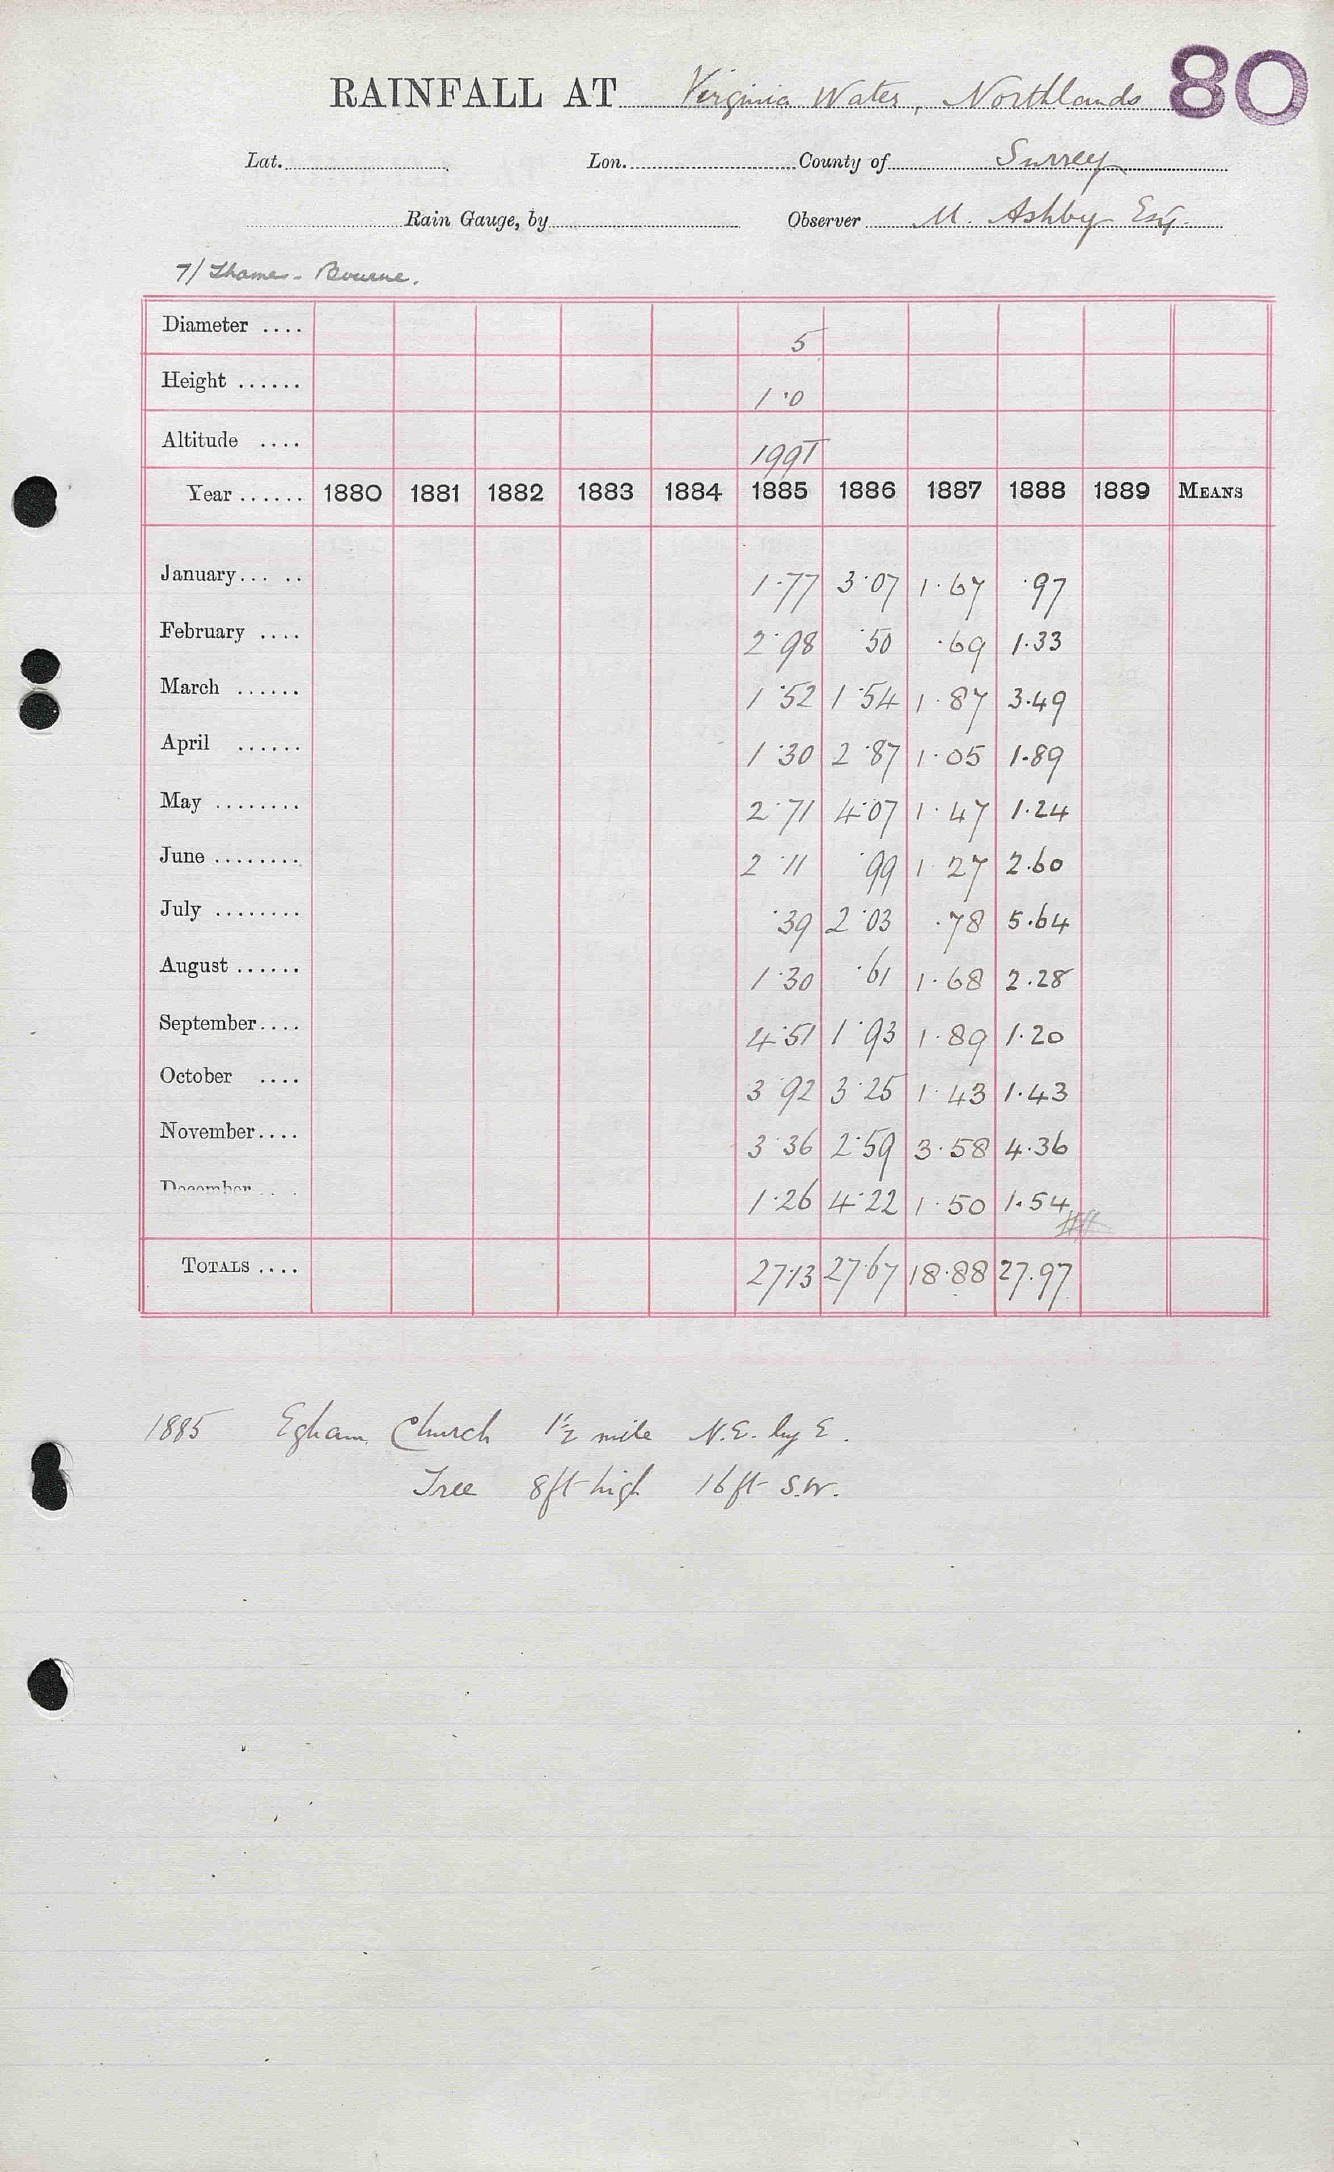 RAINFALL AT Virginia Water, Northlands 80
Lat. Lon. County of Surrey
Rain Gauge, by Observer M. Ashby Esq.
7/ Thames - Bourne.
Diameter .... 5
Height ...... 1·0
Altitude .... 199T
Year ...... 1880 1881 1882 1883 1884 1885 1886 1887 1888 1889 MEANS
January... .. 1·77 3·07 1·67 ·97
February .... 2·98 ·50 ·69 1·33
March ...... 1·52 1·54 1·87 3·49
April ...... 1·30 2·87 1·05 1·89
May ........ 2·71 4·07 1·47 1·24
June ........ 2·11 ·99 1·27 2·60
July ........ ·39 2·03 ·78 5·64
August ...... 1·30 ·61 1·68 2·28
September.... 4·51 1·93 1·89 1·20
October .... 3·92 3·25 1·43 1·43
November.... 3·36 2·59 3·58 4·36
December .... 1·26 4·22 1·50 1·54
TOTALS .... 27·13 27·67 18·88 27·97
1885 Egham Church 1½ mile N.E. by E.
Tree 8ft high 16ft S.W.